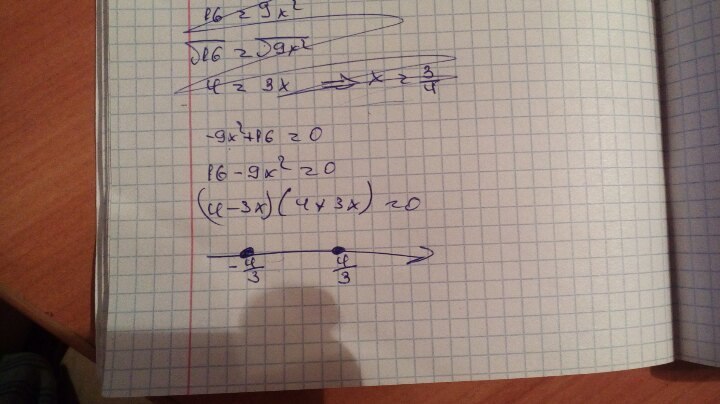 16 = 9x²
√16 = √9x²
4 = 3x ⇒ x = 3/4
-9x²+16 = 0
16 - 9x² = 0
(4-3x)(4+3x) = 0
-4/3 4/3